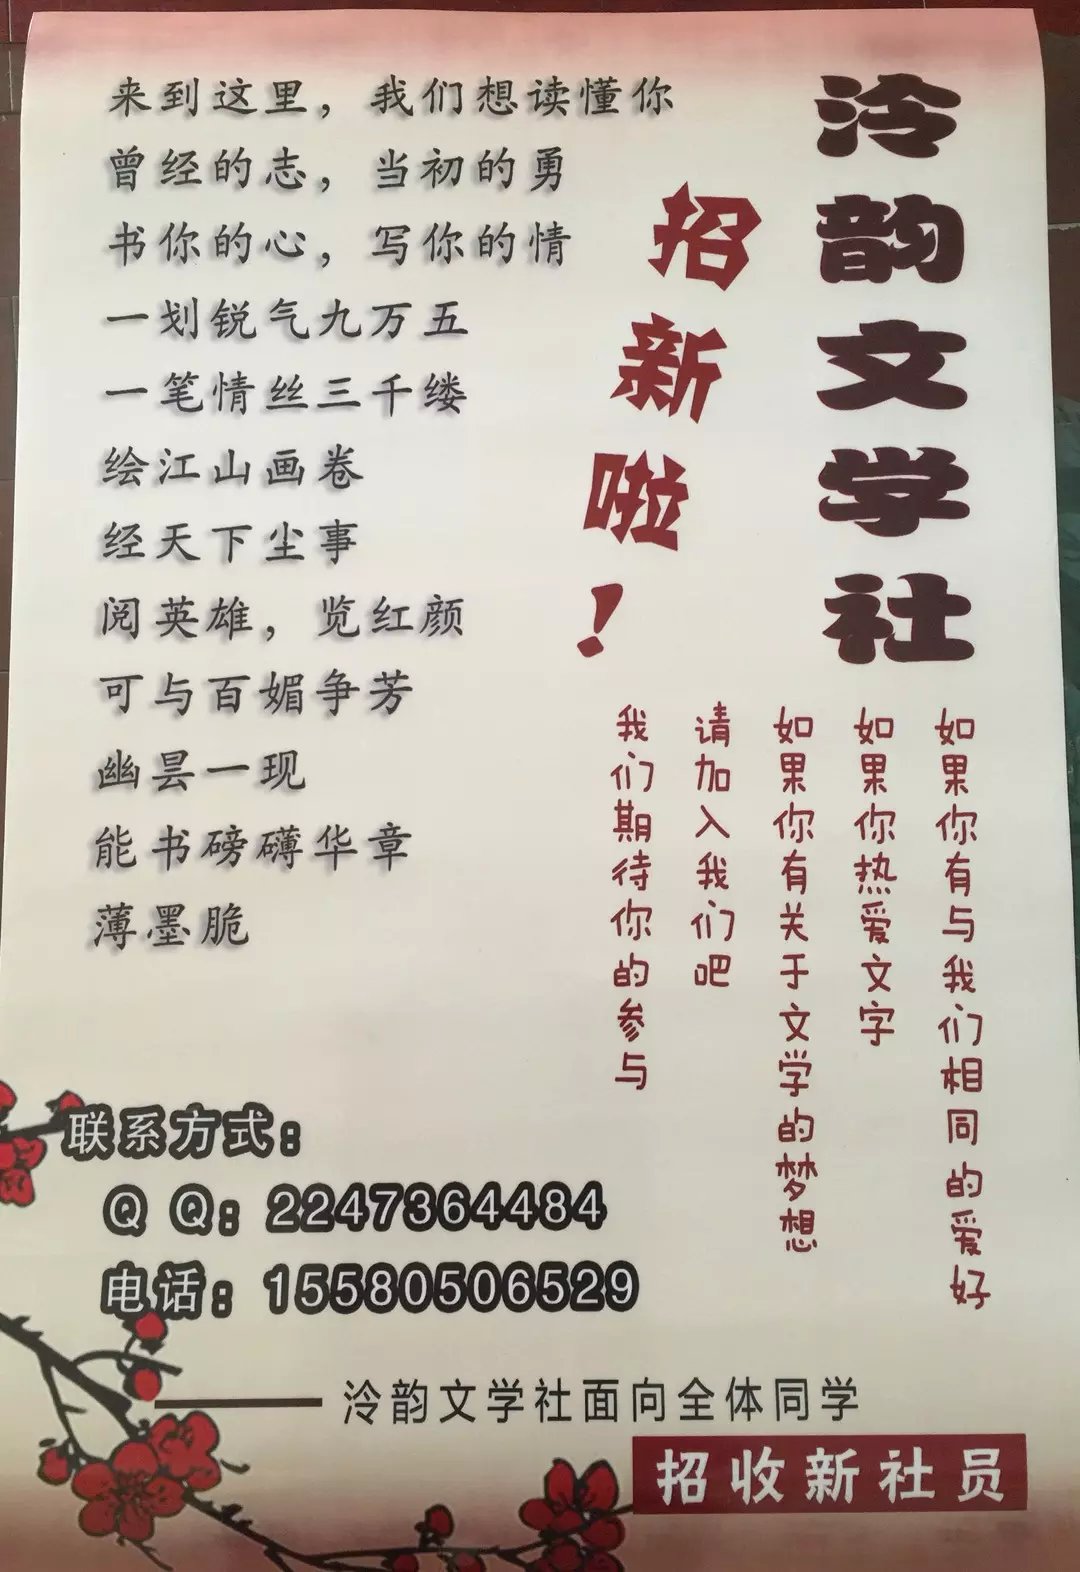 泠韵文学社
招新啦！
来到这里，我们想读懂你
曾经的志，当初的勇
书你的心，写你的情
一划锐气九万五
一笔情丝三千缕
绘江山画卷
经天下尘事
阅英雄，览红颜
可与百媚争芳
幽昙一现
能书磅礴华章
薄墨脆
如果你有与我们相同的爱好
如果你热爱文字
如果你有关于文学的梦想
请加入我们吧
我们期待你的参与
联系方式：
QQ：2247364484
电话：15580506529
——泠韵文学社面向全体同学
招收新社员